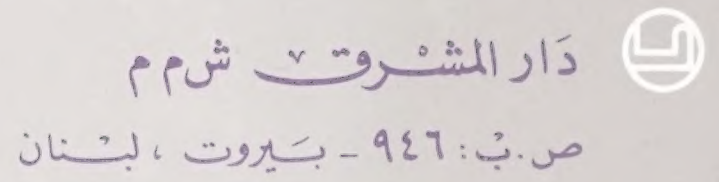 دَار المشْرق ش م م
ص.بْ: ٩٤٦ - بَيروت ، لبْنان